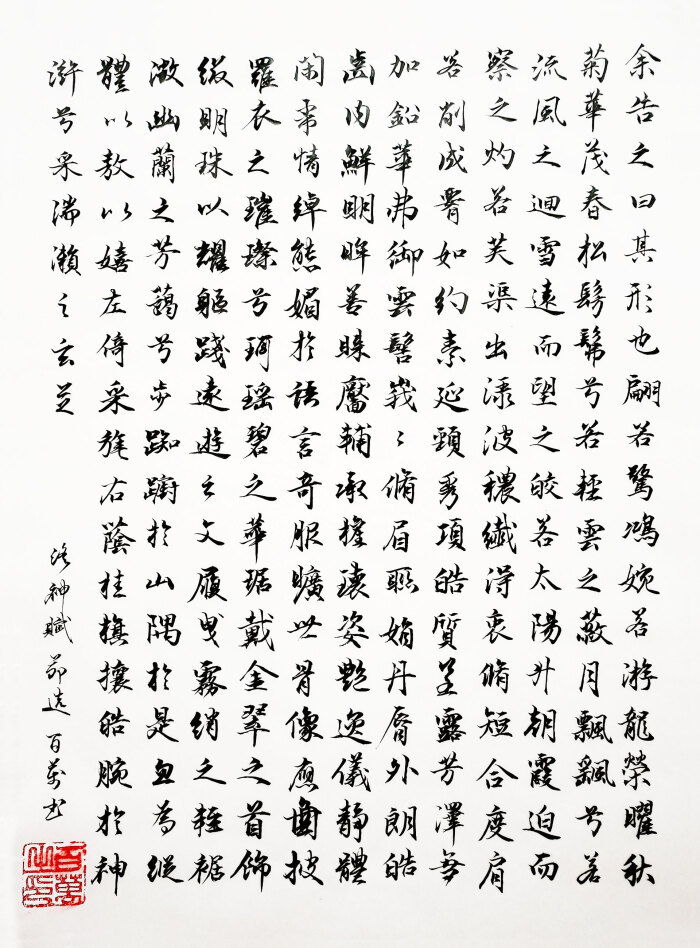 余告之曰其形也翩若驚鴻婉若游龍榮曜秋
菊華茂春松髣髴兮若輕雲之蔽月飄飖兮若
流風之迴雪遠而望之皎若太陽升朝霞迫而
察之灼若芙渠出淥波穠纖得衷脩短合度肩
若削成腰如約素延頸秀項皓質呈露芳澤無
加鉛華弗御雲髻峩〻脩眉聯娟丹脣外朗皓
齒内鮮明眸善睞靨輔承權瓌姿艷逸儀靜體
閑柔情綽態媚於語言奇服曠世骨像應圖披
羅衣之璀璨兮珥瑶碧之華琚戴金翠之首飾
綴明珠以耀軀踐遠遊之文履曳霧綃之輕裾
微幽蘭之芳藹兮步踟躕於山隅於是忽為縱
體以敖以嬉左倚采旄右蔭桂旗攘皓腕於神
滸兮采湍瀨之玄芝
洛神賦節選 百萬书
百萬之印